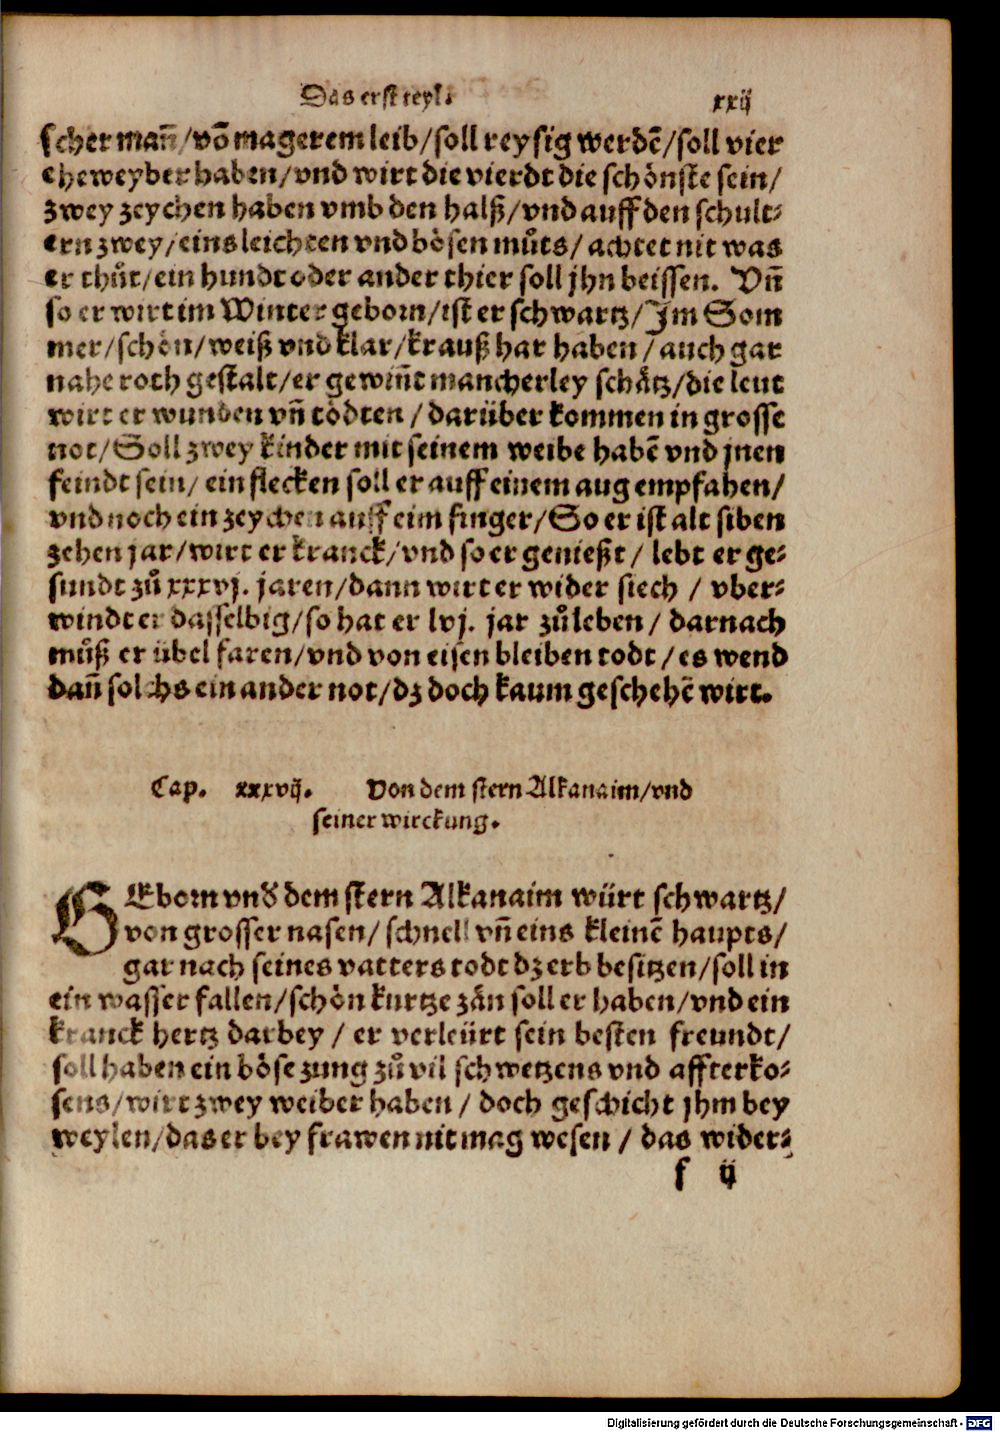 Das erst teyl. xxij
scher mañ/võ magerem leib/soll reysig werdẽ/soll vier
eheweyber haben/vnd wirt die vierdt die schönste sein/
zwey zeychen haben vmb den halß/vnd auff den schult⸗
ern zwey/eins leichten vnd bösen můts/achtet nit was
er thůt/ein hundt oder ander thier soll jhn beissen. Vñ
so er wirt im Winter geborn/ist er schwartz/Im Som
mer/schön/weiß vnd klar/krauß har haben/auch gar
nahe roth gestalt/er gewiñt mancherley schätz/die leut
wirt er wunden vñ tödten/darüber kommen in grosse
not/Soll zwey kinder mit seinem weibe habẽ vnd jnen
feindt sein/ein flecken soll er auff einem aug empfahen/
vnd noch ein zeychen auff eim finger/So er ist alt siben
zehen jar/wirt er kranck/vnd so er genießt/lebt er ge⸗
sundt zů xxxvj. jaren/dann wirt er wider siech/vber⸗
windt er dasselbig/so hat er lvj. jar zůleben/darnach
můß er übel faren/vnd von eisen bleiben todt/es wend
dañ solchs ein ander not/dz doch kaum geschehẽ wirt.
Cap. xxxvij. Von dem stern Alkanaim/vnd
seiner wirckung.
GEborn vnd dem stern Alkanaim würt schwartz/
von grosser nasen/schnell vñ eins kleinẽ haupts/
gar nach seines vatters todt dz erb besitzen/soll in
ein wasser fallen/schön kurtze zän soll er haben/vnd ein
kranck hertz darbey/er verleürt sein besten freundt/
soll haben ein böse zung zů vil schwetzens vnd affterko⸗
sens/wirt zwey weiber haben/doch geschicht jhm bey
weylen/das er bey frawen nit mag wesen/das wider⸗
f ij
Digitalisierung gefördert durch die Deutsche Forschungsgemeinschaft - DFG